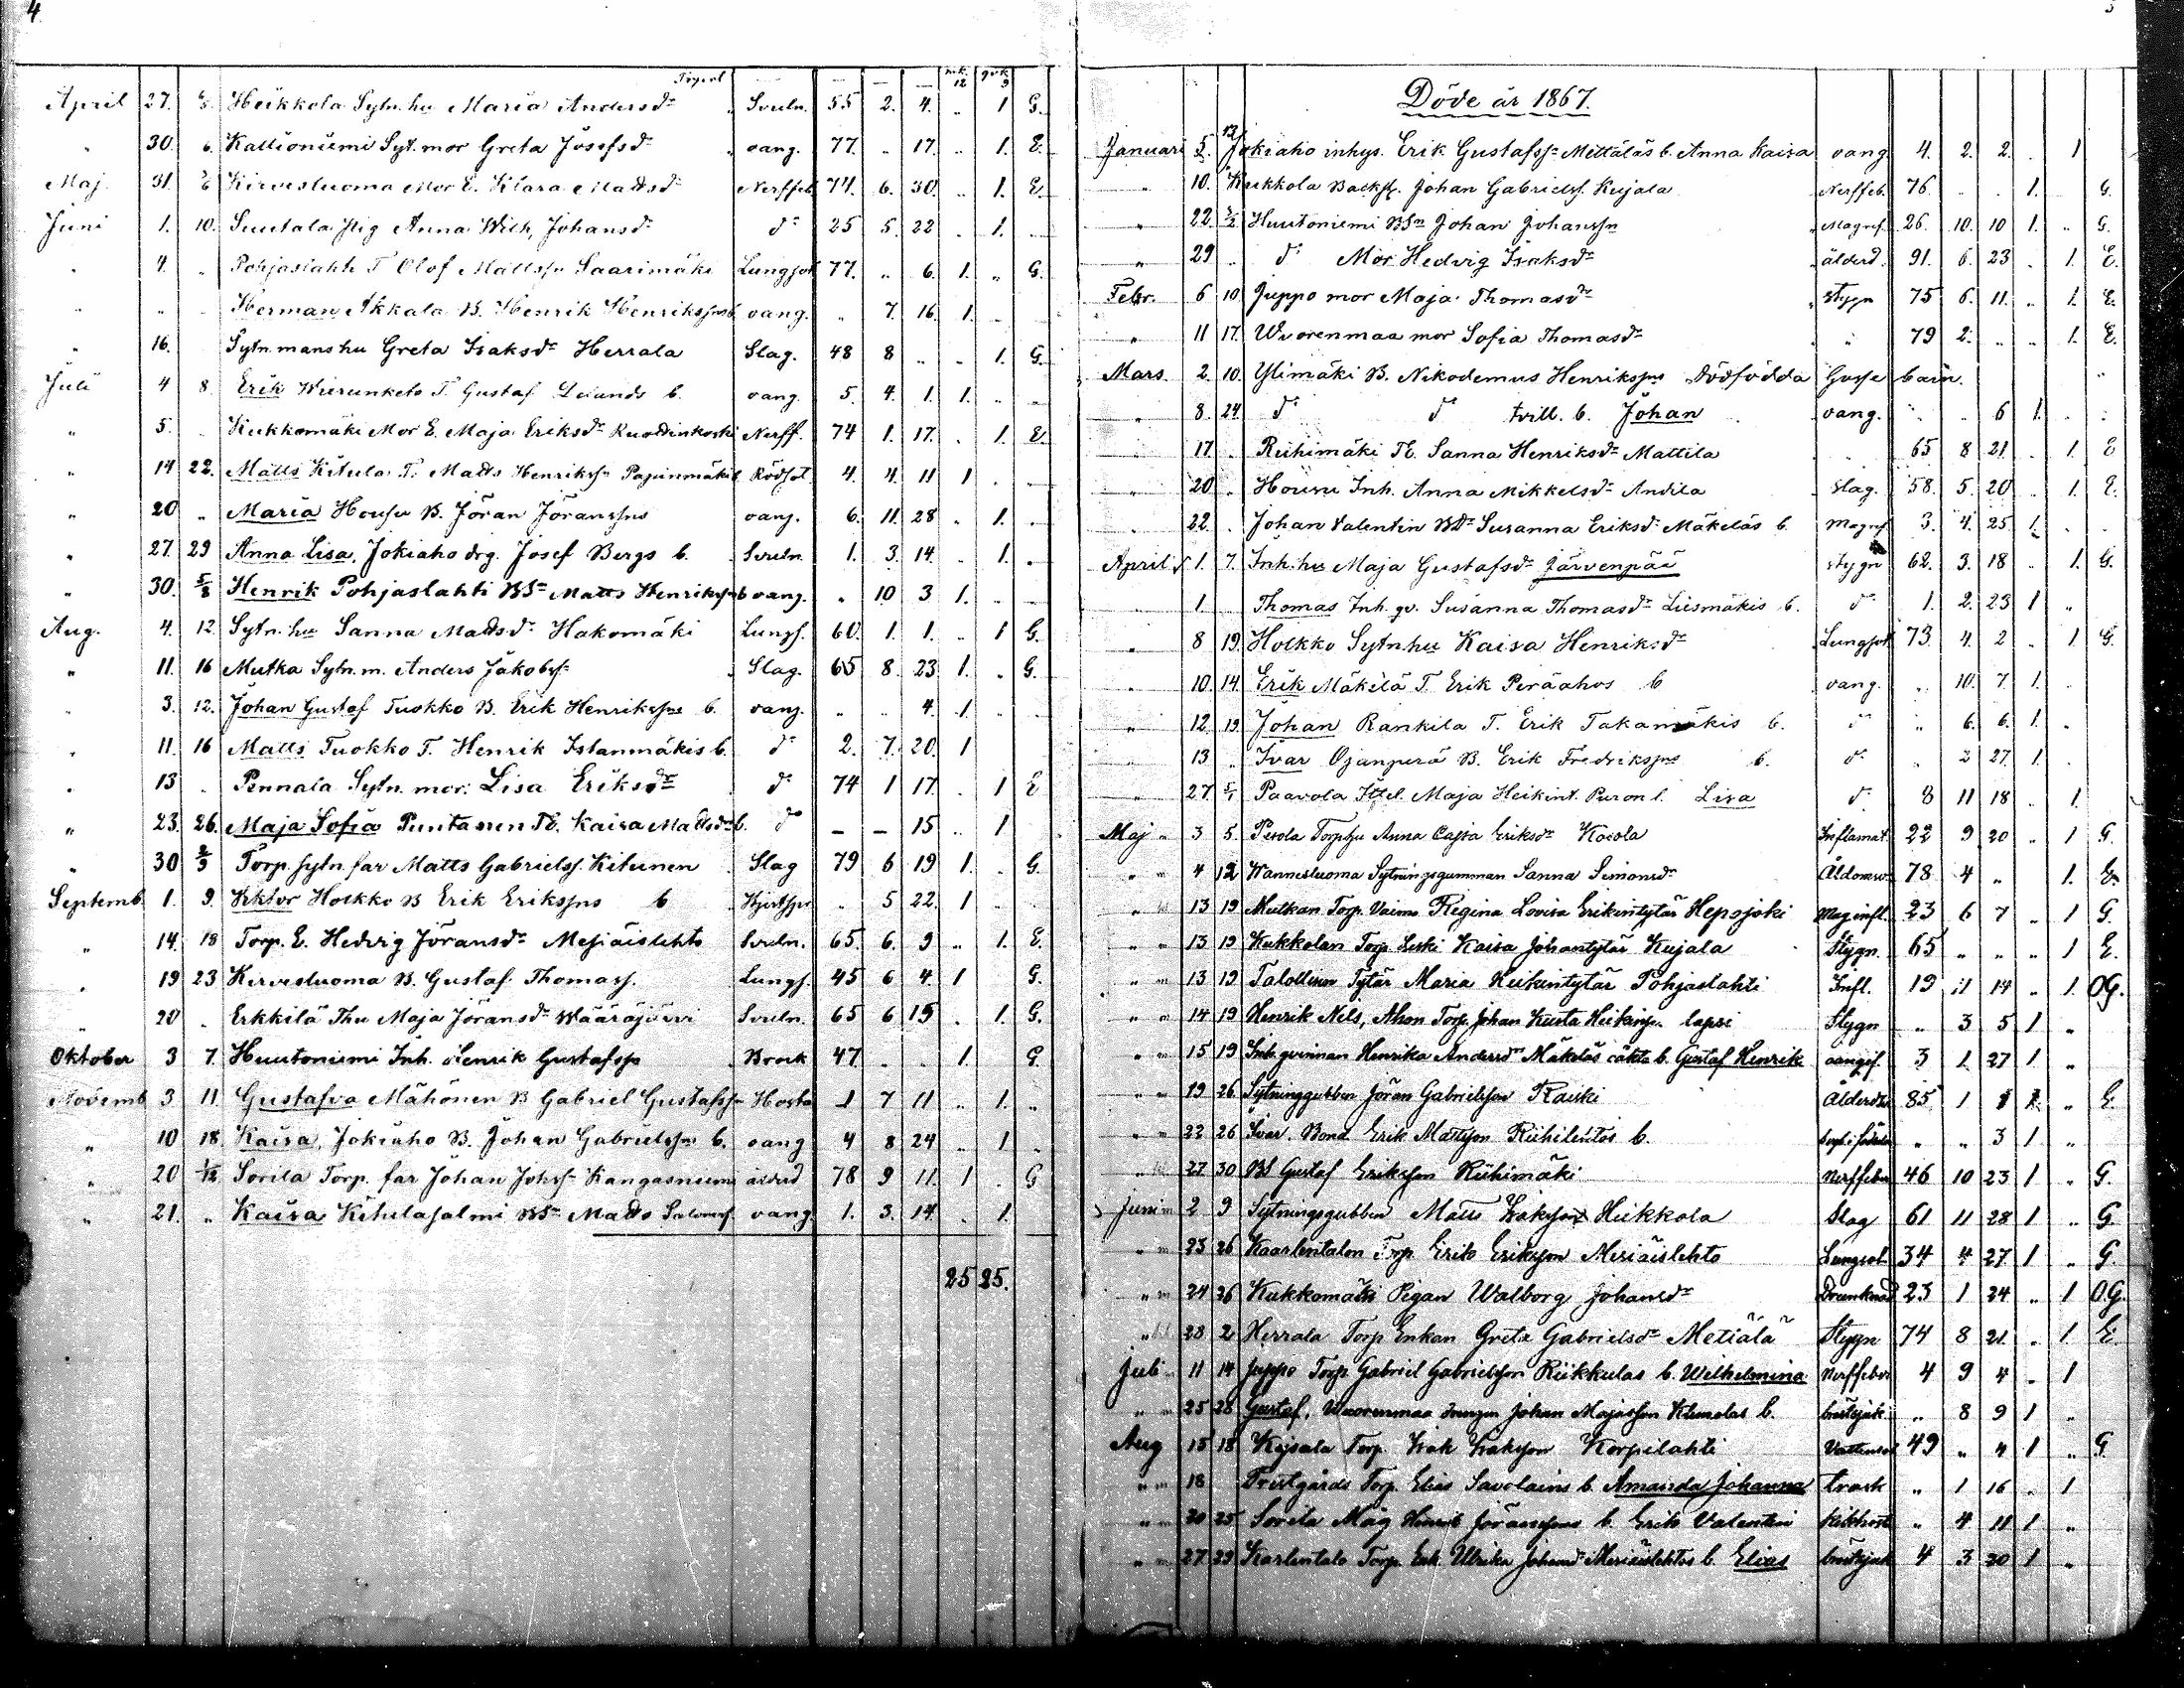 4
Transl. mk. qvk.
12 9
April 27. 6/5 Heikkola Sytn. hu Maria Andersdr Sveln. 55 2. 4. .. 1 G.
" 30. 6. Kallioniemi Syt. mor Greta Josefsdr vang. 77. .. 17. .. 1. E.
Maj 31. Kirvesluoma Mor E. Klara Mattsdr Nerffeb. 74. 6. 30. .. 1. E
Juni 1. 10. Suutala pig Anna Wilh. Johansdr do 25 5. 22 . 1.
" 4. .. Pohjaslahti T Olof Mattss. Saarimäki Lungsot 77. .. 6. 1. .. G.
" .. Herman Akkala B. Henrik Henrikssns b. vang. .. 7. 16. 1.
" 16. Sytn. mans hu Greta Isaksdr Herrala Slag. 48 8 .. .. 1. G.
Juli 4 8. Erik T. Gustaf b. vang. 5. 4. 1. 1. ..
" 5. Kukkomäki Mor E. Maja Eriksdr Nerff. 74 1. 17. . 1. E
" 14 22. Matts Kitula T. Matts Henrikss. Papinmäki b Rödsot 4. 4. 11 1
" 20 .. Maria Housu B. Jöran Jöranssns vang. 6. 11. 28 . 1.
" 27. 29 Anna Lisa, Jokiaho drg. Josef Bergs b. Sveln. 1. 3. 14. . 1.
" 30. 5/8 Henrik Pohjaslahti BSn Matts Henrikss. b vang. .. 10 3 1.
Aug. 4. 12. Sytn. hu Sanna Mattsdr Hakomäki Lungs. 60. 1. 1. .. 1 G.
" 11. 16 Mutka Sytn. m. Anders Jakobss. Slag. 65 8. 23. 1. .. G.
" 3. 12. Johan Gustaf Tuokko B. Erik Henrikssns b. vang. .. .. 4. 1.
" 11. 16 Matts Tuokko T. Henrik b. do 2. 7. 20. 1
" 13 . Pennala Sytn. mor. Lisa Eriksdr do 74 1 17. . 1 E
" 23. 26. Maja Sofia Puntanen Te. Kaisa Mattsdr b. do — — 15. .. 1
" 30 2/9 Torp. sytn. far Matts Gabrielss. Kitunen Slag 79 6 19 1. . G.
Septemb. 1. 9. Viktor Holkko B Erik Erikssns b .. 5 22. 1 ..
" 14. 18 Torp. E. Hedvig Jöransdr Mesiäislehto Sveln. 65. 6. 9 .. 1. E.
" 19 23 Kirvesluoma B. Gustaf Thomass. Lungs. 45 6 4. 1 G.
" 20 . Erkkilä Thu Maja Jöransdr Wääräjärvi Sveln. 65 6 15 . 1. G.
Oktober 3 7. Huutoniemi Inh. Henrik Gustafssn Brock 47. .. .. 1. G.
Novemb. 3 11. Gustafva Mähönen B Gabriel Gustafss. Hosta 1 7 11 .. 1. ..
" 10 18. Kaisa, Jokiaho B. Johan Gabrielssns b. vang 4 8 24 .. 1 ..
" 20 1/12 Sorila Torp. far Johan Johss. Kangasniemi ålderd 78 9 11. 1 . G
" 21. .. Kaisa Kitulasalmi BSn Matts vang. 1. 3. 14. . 1.
25 25.
Döde år 1867.
Januari 5. 13 Jokiaho inhys. Erik Gustafss. Mettäläs b. Anna Kaisa vang. 4. 2. 2. . 1
" 10. Kukkola Backst. Johan Gabrielss. Kujala Nerffeb. 76. .. .. 1. G.
" 22. Huutoniemi BSn Johan Johanssn Magref. 26. 10. 10 1. .. G.
" 29 .. do Mor Hedvig Isaksdr ålderd. 91. 6. 23 . 1. E.
Febr. 6 10. Juppo mor Maja Thomasdr stygn 75 6. 11. .. 1. E.
" 11 17. Wuorenmaa mor Sofia Thomasdr " 79 2. .. .. 1. E.
Mars. 2. 10. Ylimäki B. Nikodemus Henrikssns dödfödda Gosse barn. ..
" 8. 24. do do tvill. b. Johan vang. .. .. 6 1. ..
" 17. . Riihimäki Te. Sanna Henriksdr Mattila . 65 8 21. . 1. E
" 20 . Housu Inh. Anna Mikkelsdr Andila slag. 58. 5. 20 .. 1. E.
" 22. . Johan Valentin BDr Susanna Eriksdr Mäkeläs b. Magref. 3. 4. 25 1.
April 1. 7. Inh. hu Maja Gustafsdr Järvenpää stygn 62. 3. 18 .. 1. G.
" 1. Thomas Inh. qv. Susanna Thomasdr Liismäkis b. do 1. 2. 23 1 ..
" 8 19. Holkko Sytn. hu Kaisa Henriksdr Lungsot 73. 4. 2 .. 1 G.
" 10. 14. Erik Mäkilä T. Erik Peräahos b vang. .. 10. 7. 1.
" 12. 19 Johan Rankila T. Erik Takamäkis b. do .. 6. 6. 1.
" 13 .. Ivar Ojanperä B. Erik Fredrikssns b. do . 2 27. 1.
" 27. 5/5 Paavola Ittel. Maja Heikint. Puron l. Lisa do 8 11 18 .. 1.
Maj " 3 5. Perola Torp. hu Anna Cajsa Eriksdr Kocola Inflamat. 22 9 20 .. 1 G.
" 4 12 Wannesluoma Sytningsgumman Sanna Simonsdr Åldomsv. 78 4 .. 1. E.
" 13 19 Mutkan Torp. Vaimo Regina Lovisa Erikintytär Hepojoki Mag infl. 23 6 7 .. 1 G.
" 13 19 Kukkolan Torp. Leski Kaisa Johantytär Kujala Stygn. 65 .. .. .. 1 E.
" 13 19 Talollisen Tytär Maria Heikintytär Pohjaslahti Infl. 19 11 14 .. 1. OG.
" 14 19 Henrik Nils, Ahon Torp. Johan Kusta Heikinp. lapsi Stygn .. 3 5 1 ..
" 15 19 Inh. qvinnan Henrika Andersdr Mäkeläs oäkta b. Gustaf Henrik 3 1 27 1 ..
" 19 26 Sytninggubben Jöran Gabrielsson Raiski Ålderd. 85 1 1 1. .. E
" 22 26 Ivar. Bond. Erik Mattsson Riihilehtos b. .. .. 3 1 ..
" 27 30 BS Gustaf Eriksson Riihimäki Nerffeber 46 10 23 1 .. G.
Juni 2 9 Sytningsgubben Matts Isaksson Heikkola Slag 61 11 28 1 .. G.
" 23 26 Kaarlentalon Torp. Erik Eriksson Mesiäislehto Lungsot 34 4 27 1 .. G.
" 24 26 Kukkomäki Pigan Walborg Johansdr Drunknad 23 1 24 .. 1 O.G.
" 28 2 Herrala Torp Enkan Greta Gabrielsdr Metiälä Stygn 74 8 21 .. 1. E.
Juli 11 14 Juppo Torp. Gabriel Gabrielsson Riikkulas b. Wilhelmina Nerffeber 4 9 4 .. 1
" 25 28 Gustaf, Wuorenmaa Johan Majasson Klemolas b. bröstsjuk .. 8 9 1 ..
Aug 15 18 Kujsala Torp. Isak Isaksson Korpilahti Vattensot 49 .. 4 1 .. G
" 18 Torp. Elias Savolains b. Amanda Johanna trask .. 1 16 .. 1
" 20 25 Sorila Måg Henrik Jöranssons b. Erik Valentin kikhosta .. 4 11 1 ..
" 27 29 Karlentalo Torp. Enk. Ulrika Johansdr Mesiäislehtos b. Elias bröstsjuk 4 3 20 1 ..